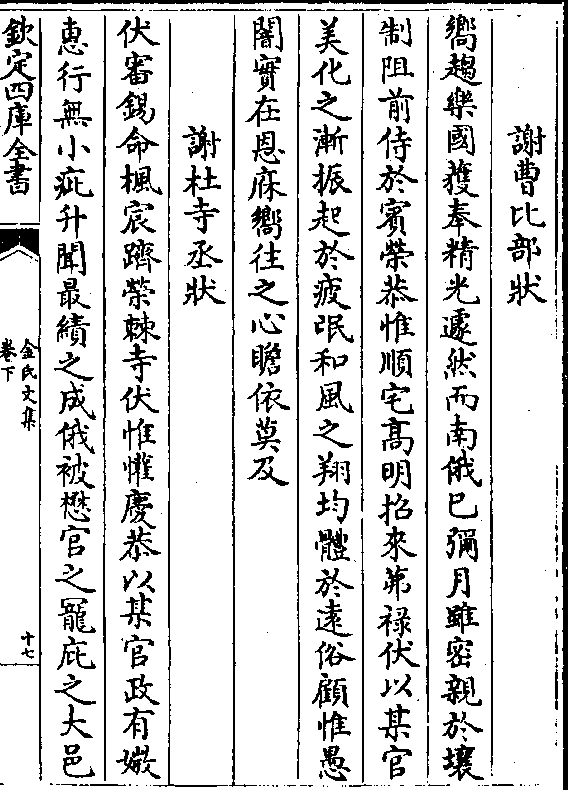 謝曹比部狀
嚮趨樂國獲奉精光遽然而南俄已彌月雖密親於壤
制阻前侍於賓榮恭惟順宅髙明招來茀禄伏以某官
美化之漸振起於疲氓和風之翔均體於逺俗顧惟愚
闇實在恩庥嚮往之心瞻依莫及
謝杜寺丞狀
伏審錫命楓宸躋榮棘寺伏惟懽慶恭以某官政有媺
恵行無小疵升聞最績之成俄被懋官之寵庇之大邑
欽定四庫全書
金氏文集
卷下
十七